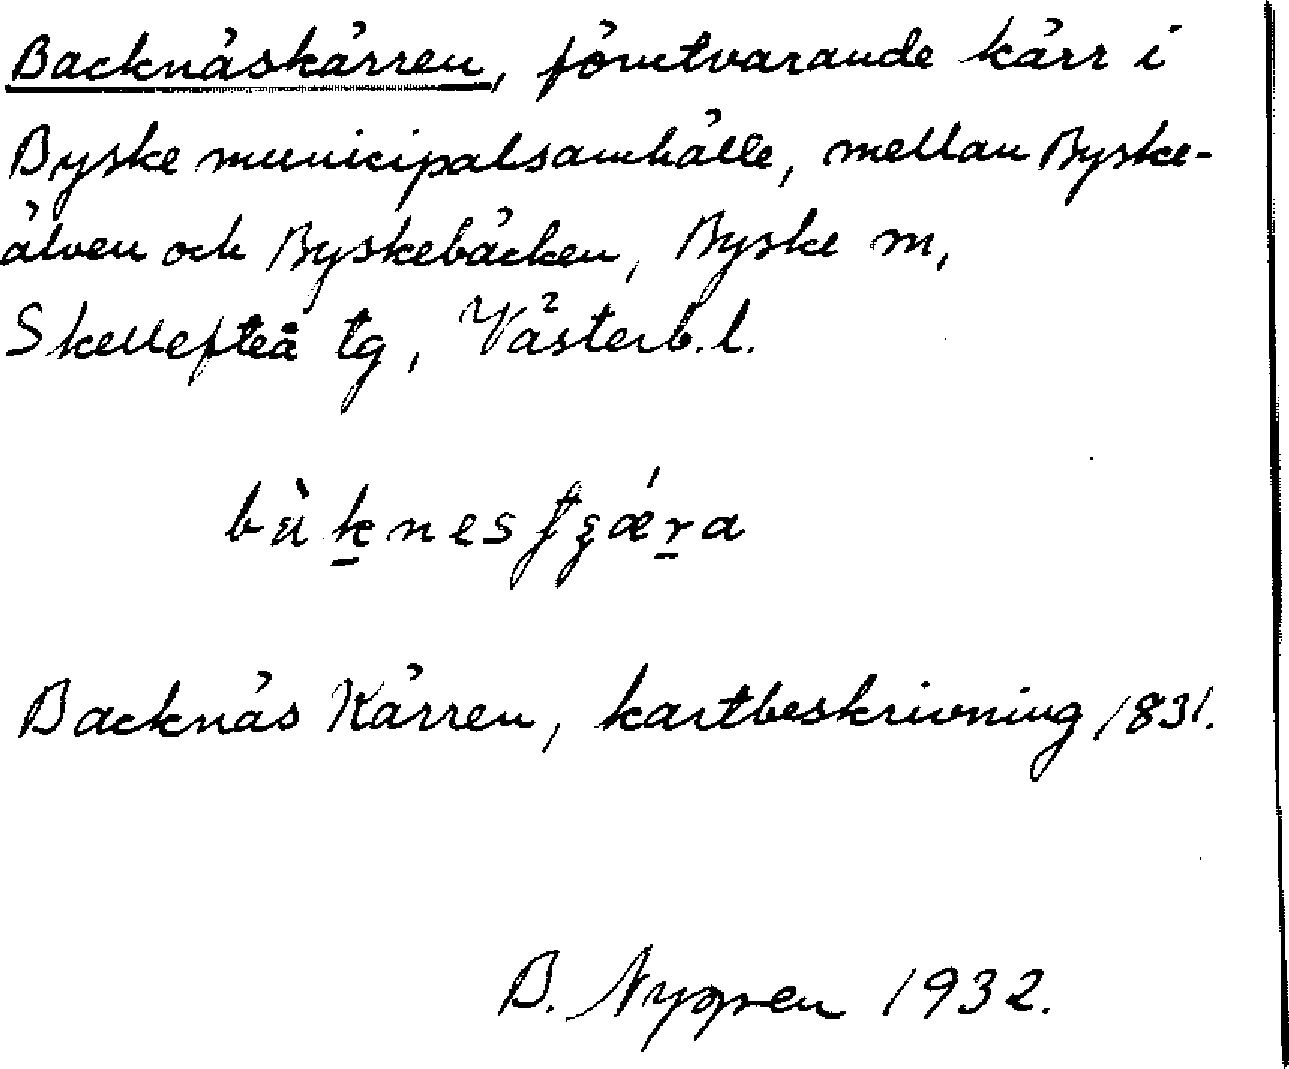 Backnäskärren, förutvarande kärr i
Byske municipalsamhälle, mellan Byske-
älven och Byskebäcken, Byske m,
Skellefteå tg, Västerb. l.
Backnäs Kärren, kartbeskrivning 1831.
B. Nygren 1932.